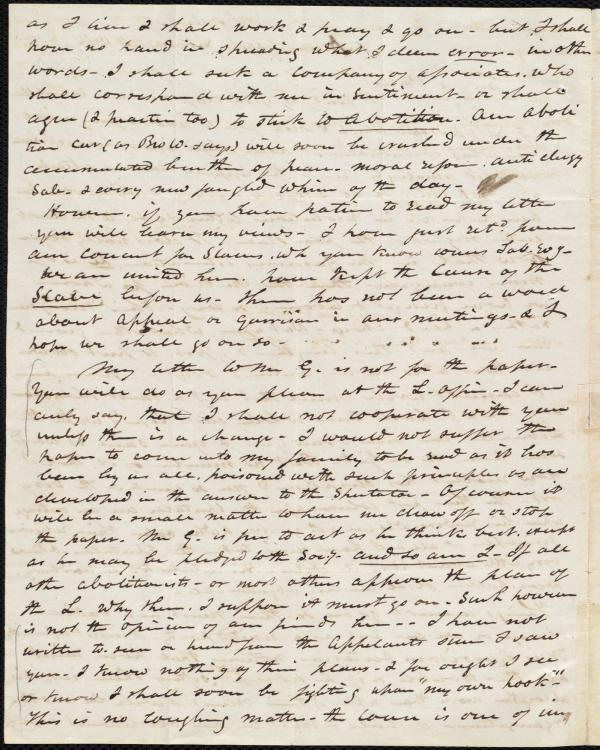 as I am I shall work & pray & go on - but I shall
have no hand in spreading what I deem error - in other
words - I shall seek a company of associates, who
shall correspond with me in sentiment - or shall
agree (& practice too) to stick to Abolition. Our aboli
tion car (as Bro W. says) will soon be crushed under the
accumulated burthen of peace - moral reform, anti clergy
Sab - & every new fangled whim of the day -
However, if you have patience to read my letter
you will learn my views - I have just retd from
our concert for Slaves, wh you know comes Sab. evg -
We are united here, have kept the Cause of the
Slave before us - there has not been a word
about appeal or Garrison in our meetings - & I
hope we shall go on so -
My letter to Mr G. is not for the paper -
You will do as you please at the L. office - I can
only say, that I shall not cooperate with you
unless there is a change - I would not suffer the
paper to come into my family to be read as it has
been by us all, poisoned with such principles as are
developed in the answer to the Spectator - Of course it
will be a small matter to have me draw off or stop
the paper. Mr G. is free to act as he thinks best, except
as he may be pledged to the Socy - and so am I - If all
other abolitionists - or most others approve the plan of
the L. why then, I suppose it must go on - Such however
is not the opinion of our friends here - - I have not
written to - seen or heard from the Appelants since I saw
you - I know nothing of their plans - & for ought I see
or know I shall soon be fighting upon "my own hook" -
This is no laughing matter - the cause is one of im